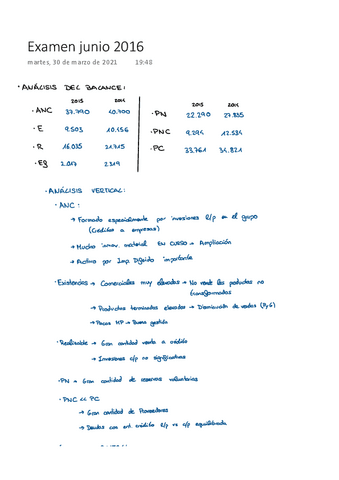 Examen junio 2016
martes, 30 de marzo de 2021 19:48
· ANÁLISIS DEL BALANCE:
2015 2014
· ANC 37.790 40.700
· E 9.503 10.456
· R 16.035
· Ef 2.017 2319
2015 2014
· PN 22.290 27.835
· PNC 9.294 12.534
· PC 33.761 34.821
· ANÁLISIS VERTICAL:
· ANC:
→ Formado especialmente por inversiones l/p en el grupo
(Créditos a empresas)
→ Mucho inmov. material EN CURSO → Ampliación
→ Activo por Imp. Diferido importante
· Existencias → Comerciales muy elevadas → No vende los productos no
transformados
→ Productos terminados elevados → Disminución de ventas (PyG)
→ Pocas MP → Buena gestión
· Realizable → Gran cantidad venta a crédito
→ Inversiones c/p no significativas
· PN → Gran cantidad de reservas voluntarias
· PNC << PC
→ Gran cantidad de Proveedores
→ Deudas con ent. crédito l/p vs c/p equilibrada